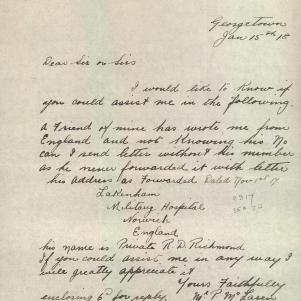 Georgetown
Jan 15th 18
Dear Sir or Sirs
I would like to Know if
you could assist me in the following
a Friend of mine has wrote me from
England and not Knowing his No
can I send letter without his number
as he never forwarded it with letter
his address as Forwarded Dated Nov 1st 17.
Lakenham
Military Hospital
Norwich
England
his name is Private R. D. Richmond
If you could assist me in any way I
will greatly appreciate it
Yours Faithfully
enclosing 6d for reply.